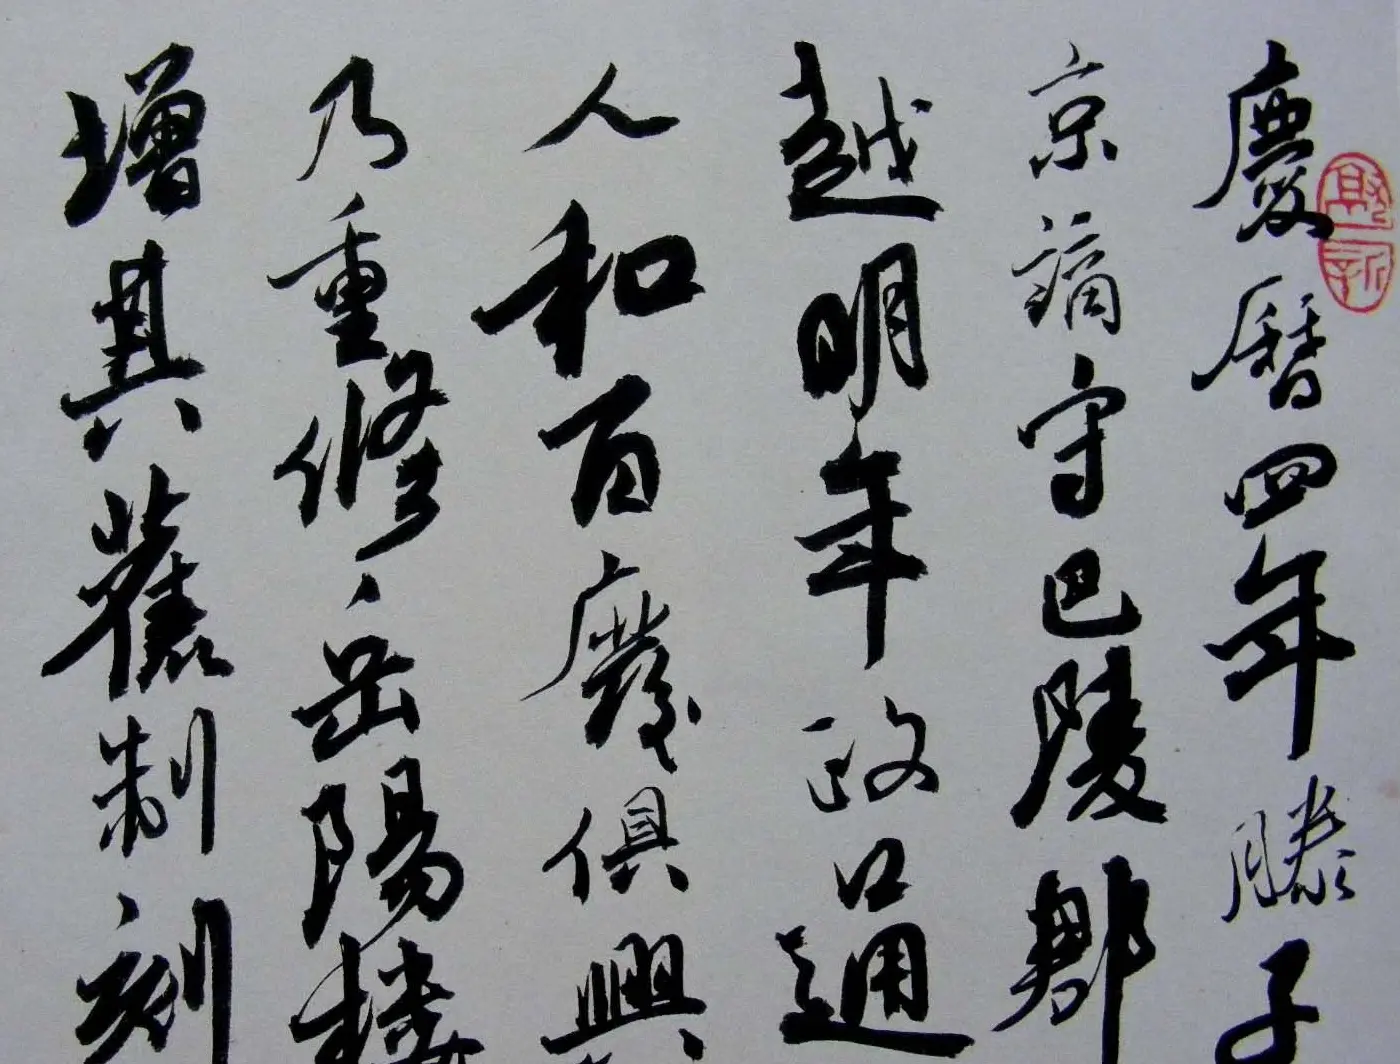 慶曆四年滕子
京謫守巴陵郡
越明年政通
人和百廢俱興
乃重修岳陽樓
增其舊制刻